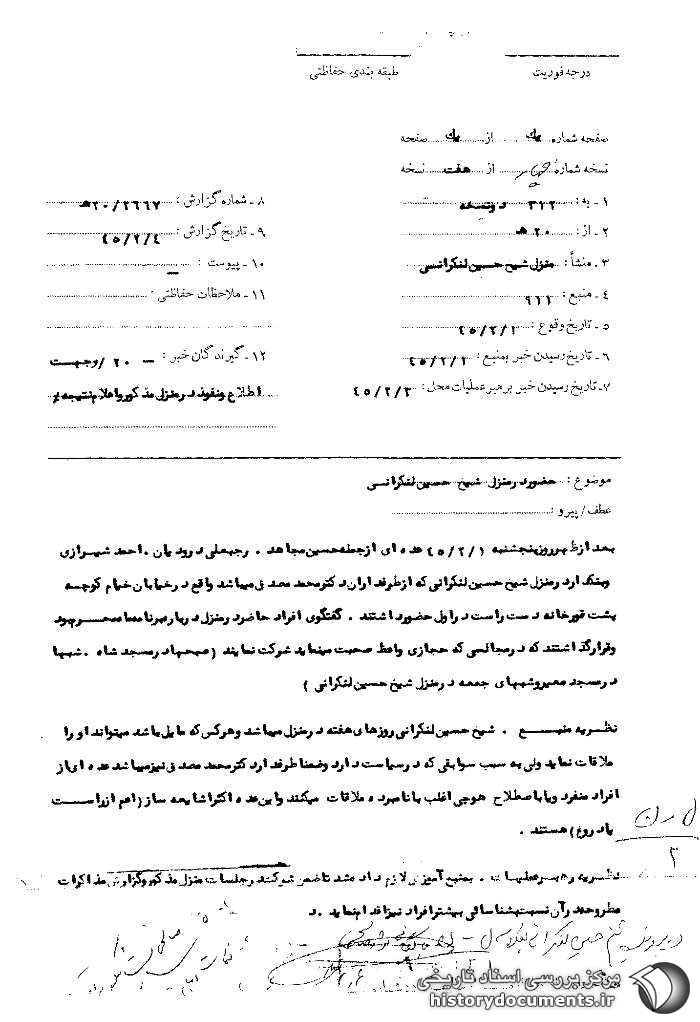 درجه فوریت
طبقه بندی حفاظتی
صفحه شماره یک از یک صفحه
نسخه شماره از هفت نسخه
۱ - به: ۳۱۲ دونسخه
۲ - از: ۲۰ ه‍
۳ - منشأ: منزل شیخ حسین لنکرانسی
۴ - منبع: ۹۱۱
۵ - تاریخ وقوع: ۴۵/۲/۱
۶ - تاریخ رسیدن خبر بمنبع: ۴۵/۲/۱
۷ - تاریخ رسیدن خبر برهبر عملیات محل: ۴۵/۲/۳
۸ - شماره گزارش: ۲۰/۲۶۶۷ ه‍
۹ - تاریخ گزارش: ۴۵/۲/۴
۱۰ - پیوست: -
۱۱ - ملاحظات حفاظتی:
۱۲ - گیرندگان خبر: - ۲۰/وجهت
اطلاع ونفوذ در منزل مذکور واعلام نتیجه
موضوع: حضور در منزل شیخ حسین لنکرانسی
عطف/پیرو:
بعد از ظهر روز پنجشنبه ۴۵/۲/۱ عده ای ازجمله حسین مجاهد . رجبعلی درودیان . احمد شیرازی
وبنکدار در منزل شیخ حسین لنکرانی که ازطرفداران دکتر محمد مصدق میباشد واقع در خیابان خیام کوچسه
پشت قورخانه دست راست در اول حضور داشتند . گفتگوی افراد حاضر در منزل درباره برنامه محسرم بود
وقرار گذاشتند که در مجالسی که حجازی واعظ صحبت مینماید شرکت نمایند (صبحها در مسجد شاه . شبها
در مسجد معیر وشبهای جمعه در منزل شیخ حسین لنکرانی )
نظریه منبسع . شیخ حسین لنکرانی روزهای هفته در منزل میباشد وهرکس که مایل باشد میتواند او را
ملاقات نماید ولی به سبب سوابقی که در سیاست دارد وضمنا طرفدار دکتر محمد مصدق نیز میباشد عده ای از
افراد منفرد ویا باصطلاح هوچی اغلب با نامبرده ملاقات میکنند واین عده اکثرا شایعه ساز (اعم از راست
یا دروغ) هستند .
نظریه رهبر عملیات . بمنبع آموزش لازم داده شد تا ضمن شرکت در جلسات منزل مذکور وگزارش مذاکرات
مطروحه در آن نسبت بشناسائی بیشتر افراد نیز اقدام نماید .
۲
مرکز بررسی اسناد تاریخی
historydocuments.ir